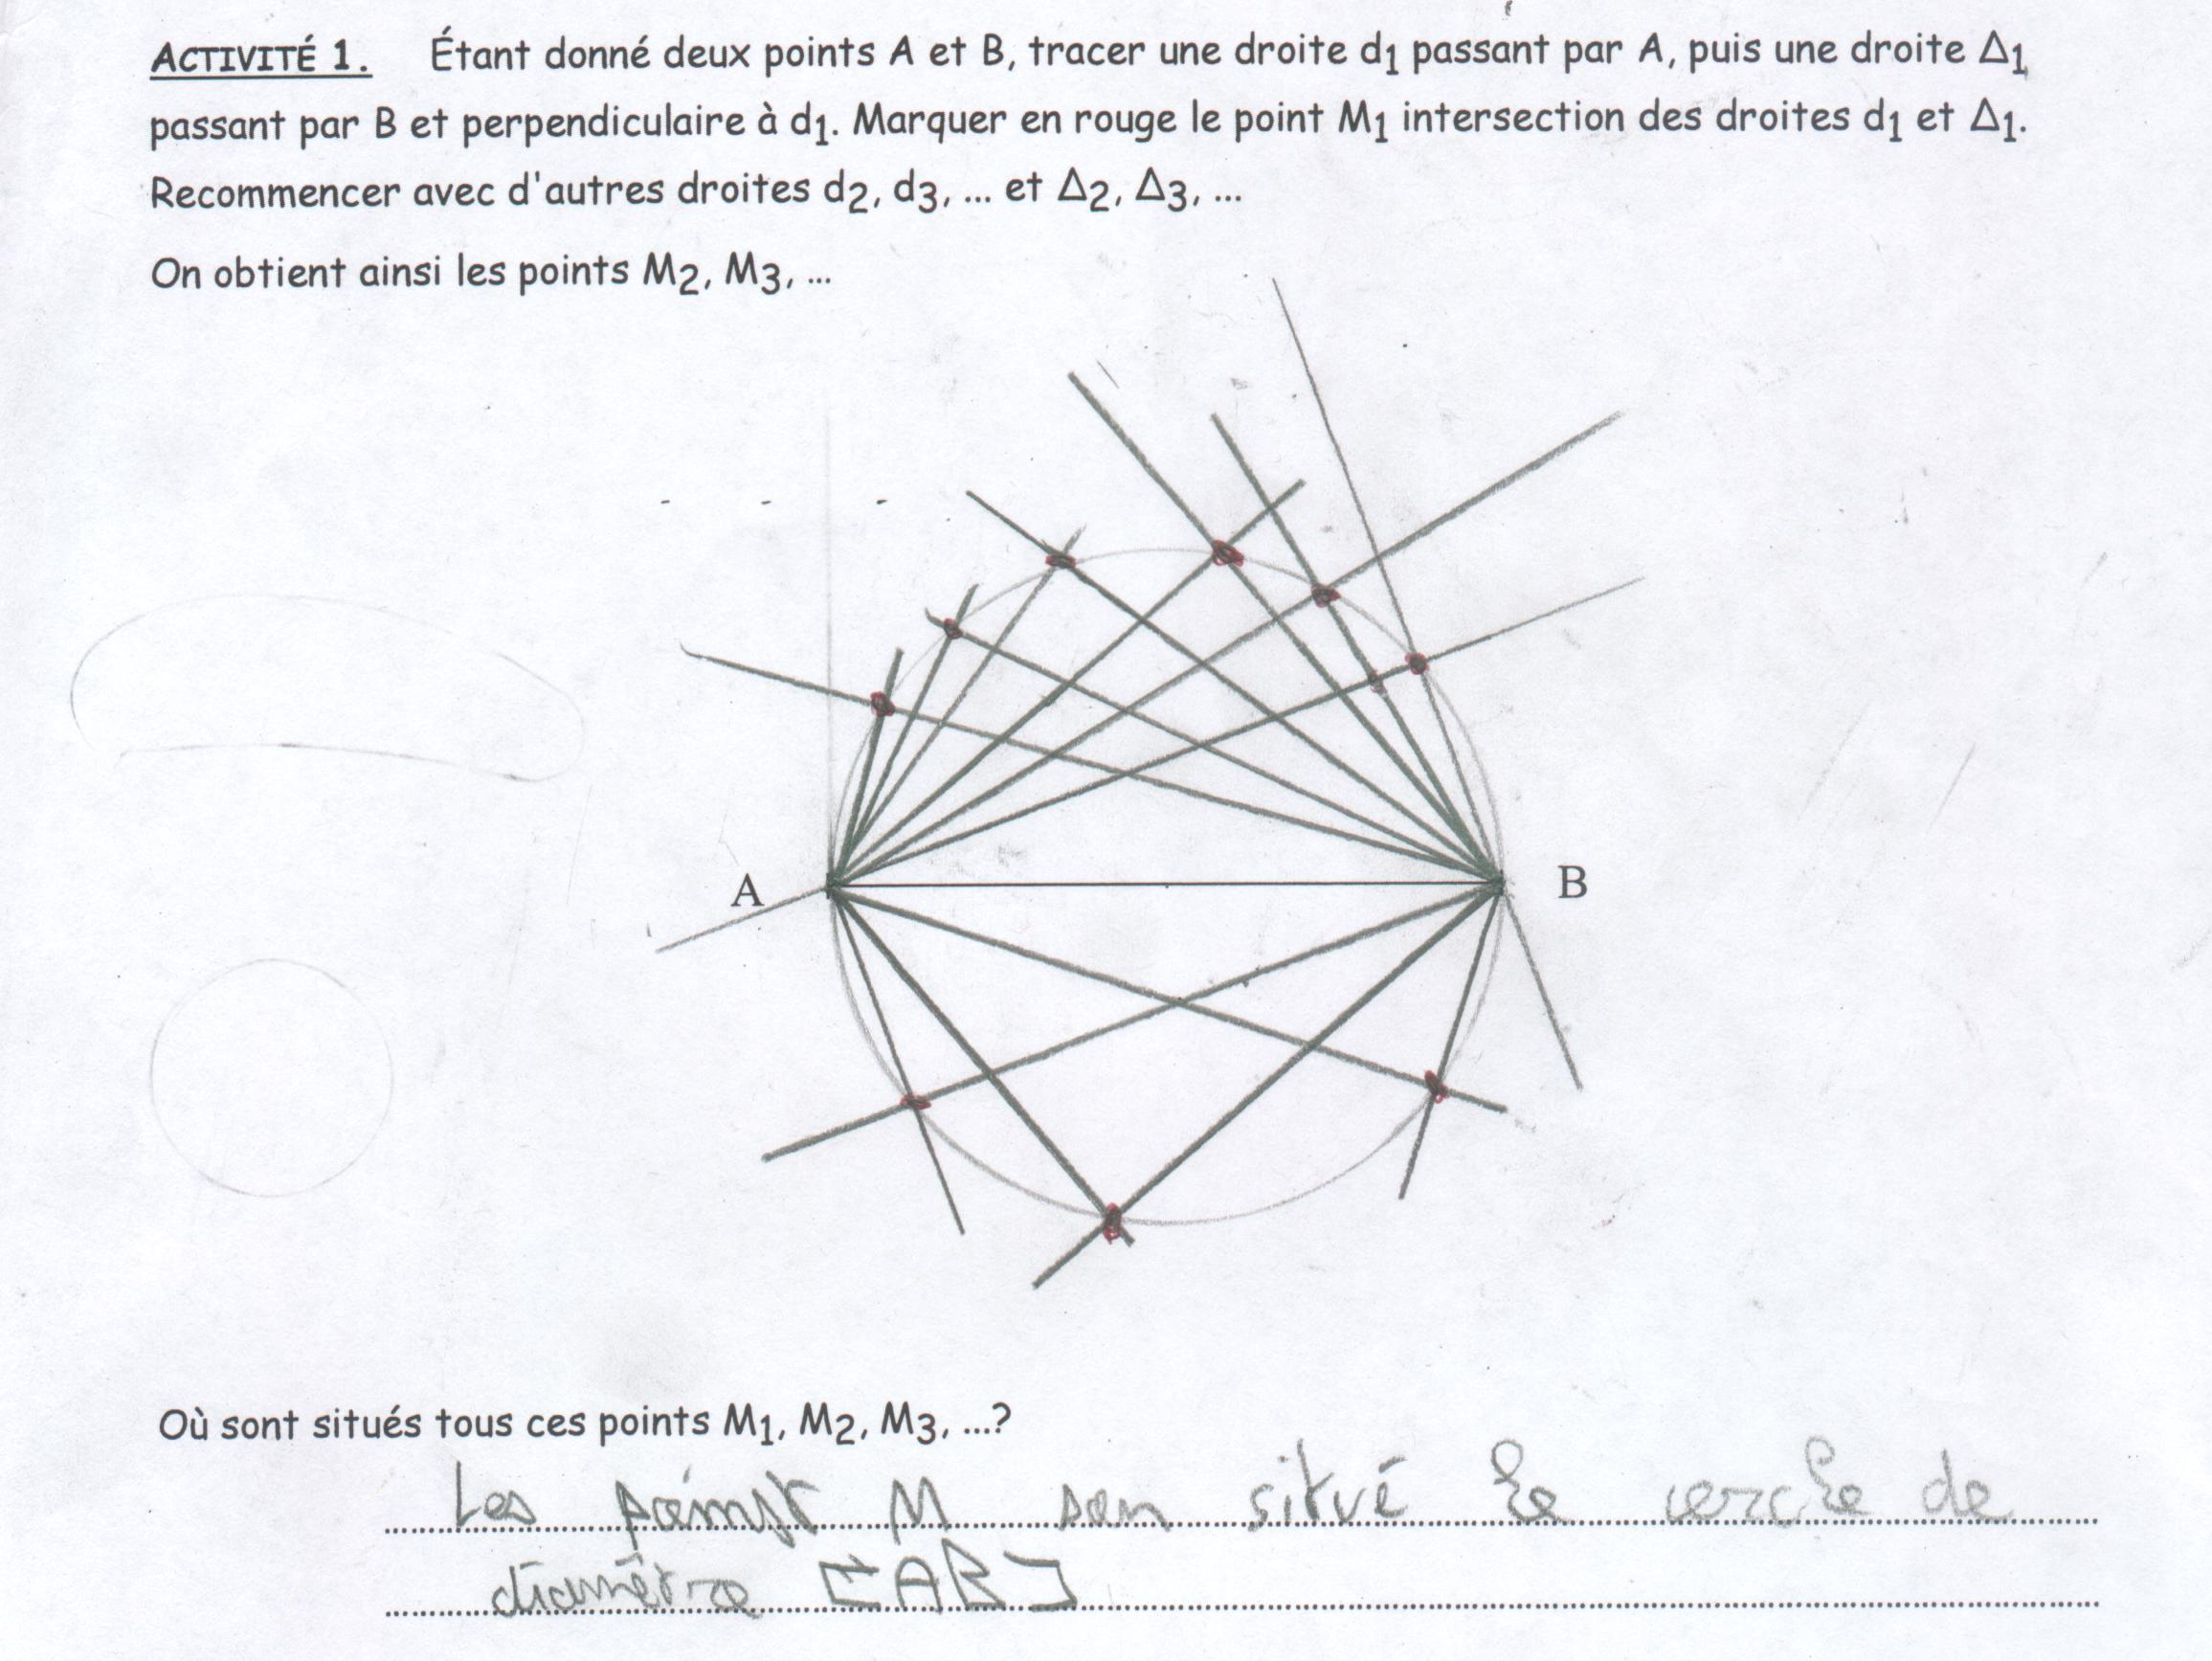 ACTIVITÉ 1. Étant donné deux points A et B, tracer une droite d1 passant par A, puis une droite Δ1
passant par B et perpendiculaire à d1. Marquer en rouge le point M1 intersection des droites d1 et Δ1.
Recommencer avec d'autres droites d2, d3, ... et Δ2, Δ3, ...
On obtient ainsi les points M2, M3, ...
A
B
Où sont situés tous ces points M1, M2, M3, ...?
Les point M son situé le cercle de
diamètre [AB]